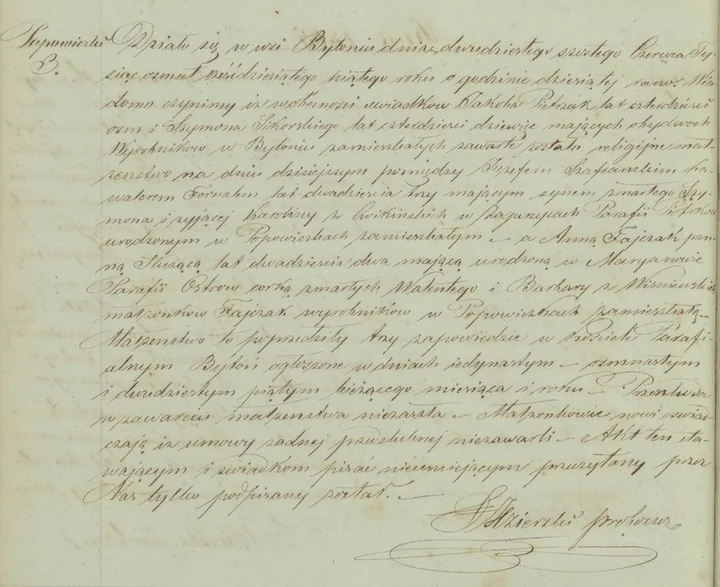 Popowiczki
3.
Działo się w wsi Bytoniu dnia dwudziestego szostego Czerwca Ty-
siąc osmset sześćdziesiątego piątego roku o godzinie dziesiątej rano. Wia-
domo czynimy iz w obecności swiadków Jakoba Pietrzak lat czterdzieści
osm i Szymona Sikorskiego lat czterdzieści dziewięć mających obydwóch
Wyrobników w Bytoniu zamieszkałych zawarte zostało religijne mał-
zeństwo na dniu dzisiejszym pomiędzy Jozefem Szafranskim ka-
walerem Fornalem lat dwadzieścia trzy mającym synem zmarłego Szy-
mona i zyjącej Karoliny z w Parafii
urodzonym w Popowiczkach zamieszkałym – a Anną Fajczak pan-
ną Służącą lat dwadzieścia dwa mającą urodzoną w Maryanowie
Parafii Ostrów corką zmarłych Walentego i Barbary z Wisniewskich
małzonków Fajczak wyrobników w Popowiczkach zamieszkałą.–
Małzenstwo to poprzedziły trzy zapowiedzie w Kościele Parafi-
alnym Bytoń ogłoszone w dniach iedynastym – osmnastym
i dwudziestym piątym biezącego miesiąca i roku – Przeszkoda
w zawarciu małzenstwa niezaszła – Małzonkowie nowi oswiad-
czają iz umowy zadnej przedslubnej niezawarli – Akt ten sta-
wającym i swiadkom pisać nieumiejącym przeczytany przez
Nas tylko podpisany został. –
proboszcz